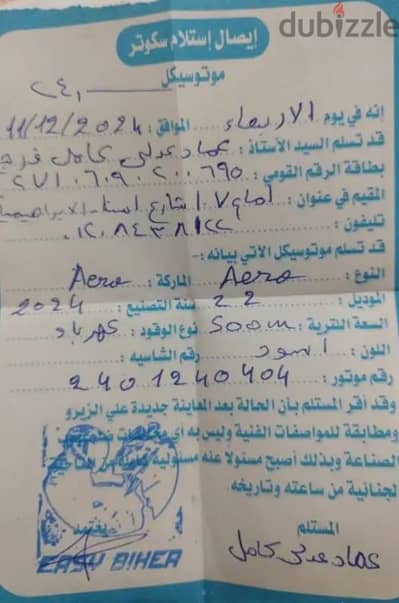 dubizzle
إيصال إستلام سكوتر
موتوسيكل
إنه في يوم الاربعاء الموافق : 11/12/2024
قد تسلم السيد الأستاذ : عماد عدلى كامل فرج
بطاقة الرقم القومى :
المقيم في عنوان : شارع
تليفون :
قد تسلم موتوسيكل الآتي بيانه :-
النوع : Aero الماركة : Aero
الموديل : 22 سنة التصنيع : 2024
السعة اللترية : 500m نوع الوقود : كهرباء
اللون : اسود رقم الشاسيه :
رقم موتور : 2401240404
وقد أقر المستلم بأن الحالة بعد المعاينة جديدة علي الزيرو
ومطابقة للمواصفات الفنية وليس به أي
الصناعة وبذلك أصبح مسئولا عنه مسئولية
لجنائية من ساعته وتاريخه
المستلم
عماد عدلى كامل
EASY BIHER